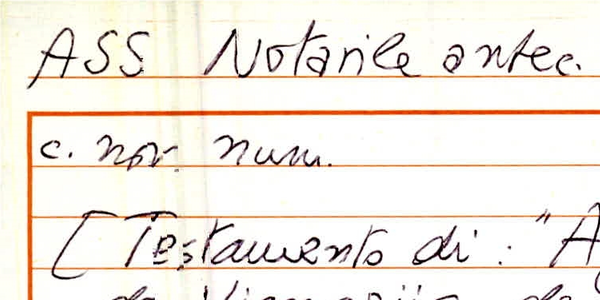 ASS Notarile antec.
c. non num.
[Testamento di: "A